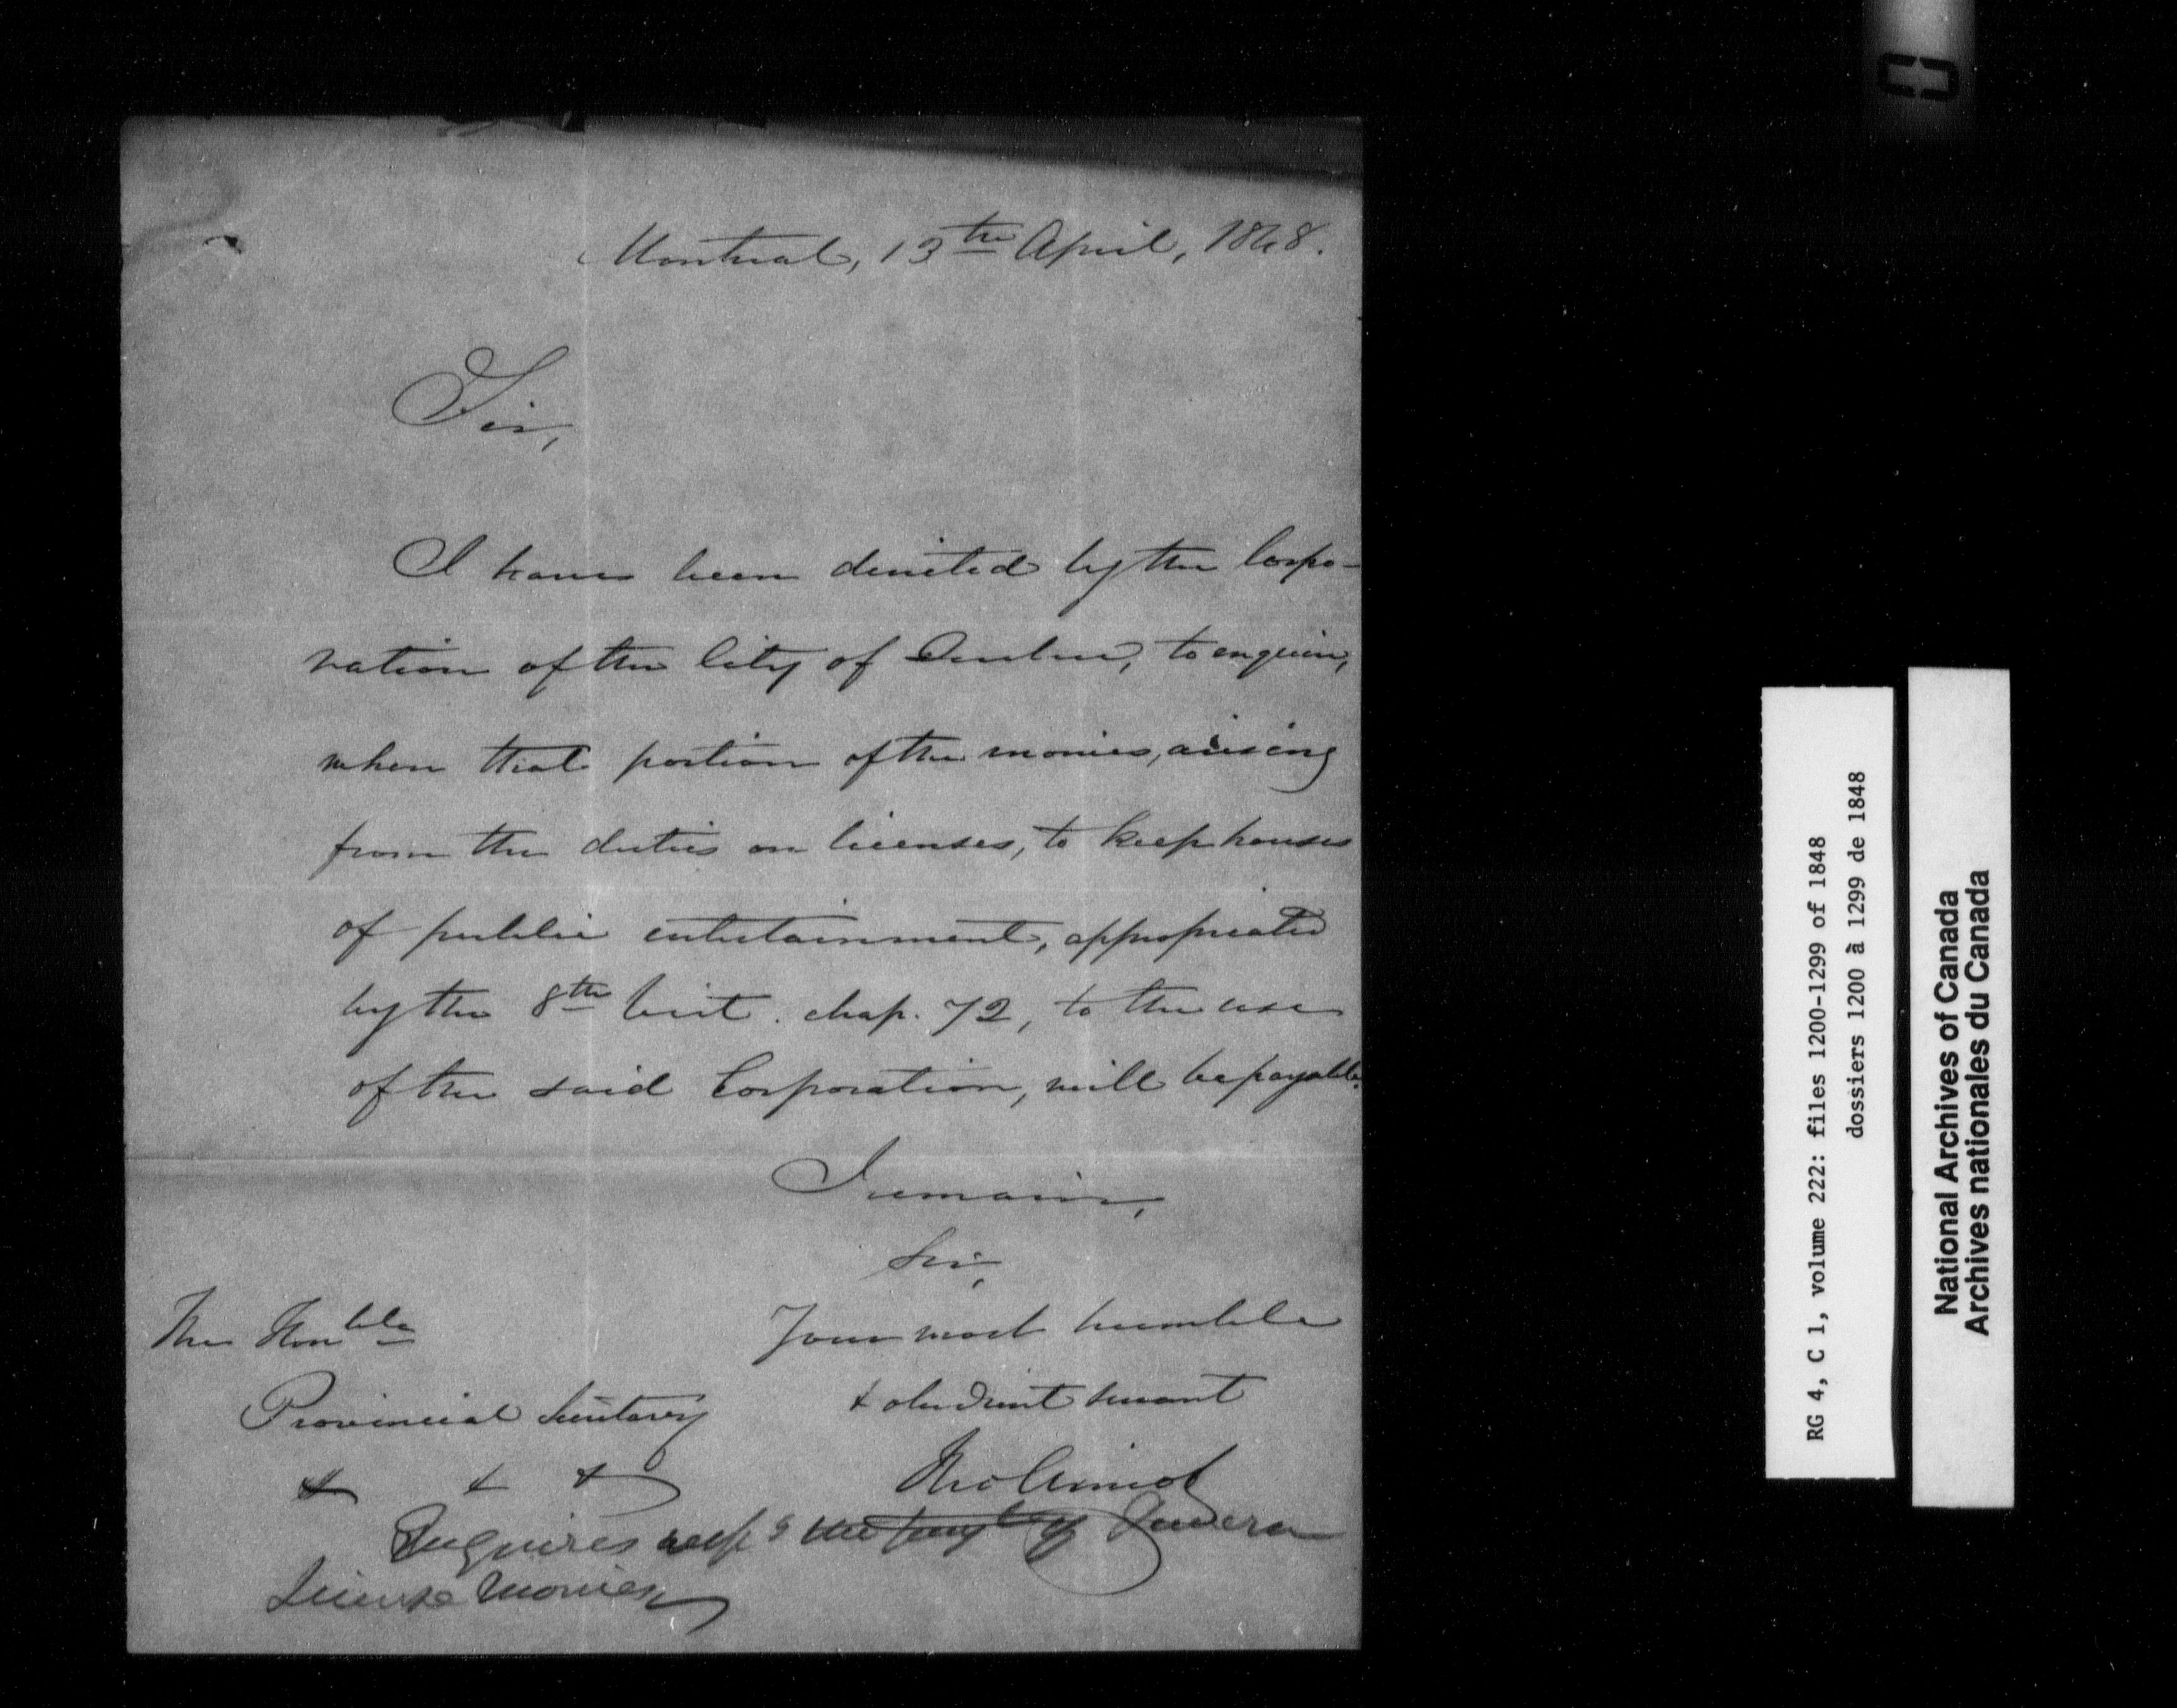 Montreal, 13th April, 1848.
Sir,
I have been directed by the Corpo-
ration of the City of Quebec, to enquire,
when that portion of the monies, arising
from the duties on licenses, to keep houses
of public entertainment, appropriated
by the 8th Vict. chap. 72, to the use
of the said Corporation, will be payable.
I remain,
Sir,
Your most humble
& obedient servant
The Honble
Provincial Secretary
& & &
Enquires resp g the Tavern
License Monies
RG 4, C 1, volume 222: files 1200-1299 of 1848
dossiers 1200 à 1299 de 1848
National Archives of Canada
Archives nationales du Canada